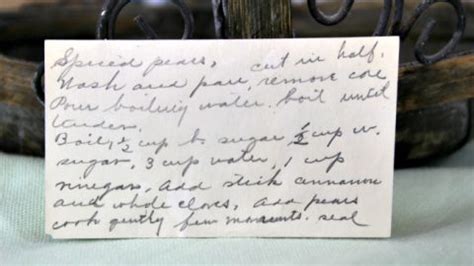 Spiced pears, cut in half.
Wash and pare, remove core
Pour boiling water, boil until
tender.
Boil, ½ cup b. sugar ½ cup w.
sugar, 3 cup water, 1 cup
vinegar, add stick cinnamon
and whole cloves, add pears
cook gently few moments. seal